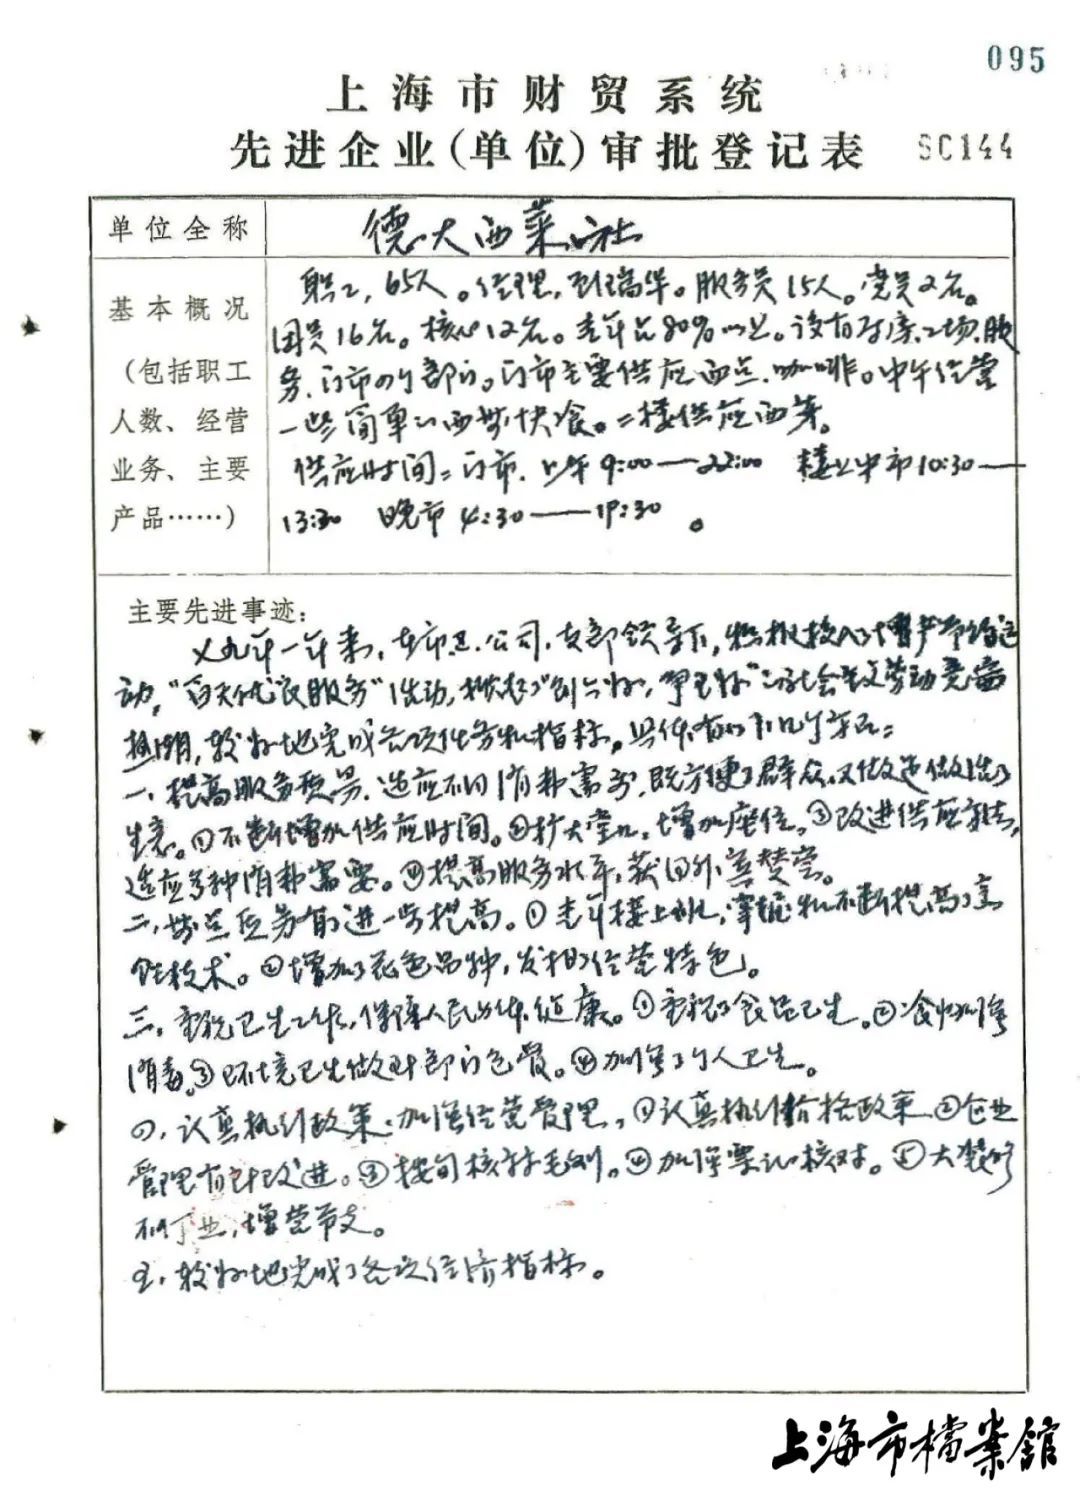 095
上海市财贸系统
先进企业(单位)审批登记表 SC144
单位全称 德大西菜社
基本概况
(包括职工
人数、经营
业务、主要
产品……)
职工65人。经理,瑞华。服务员15人。党员2名。
团员16名。核心12名。青年占80%以上。设有厨房、工场、服
务、门市四个部门。门市主要供应西点、咖啡。中午经营
一些简单的西菜快餐。二楼供应西菜。
供应时间:门市.上午9:00—22:00 楼上中市10:30—
13:30 晚市4:30——19:30。
主要先进事迹:
七九年一年来,在市、公司、支部领导下,积极投入了增产节约运
动,"百天优质服务"活动,掀起了"创六好,争五好"的社会主义劳动竞赛
热潮,较好地完成各项任务和指标。具体有如下几个方面:
一、提高服务质量、适应不同消费需要,既方便了群众又做活了
生意。①不断增加供应时间。②扩大堂口,增加座位。③改进供应方法,
适应多种消费需要。④提高服务水平,获国外宾赞赏。
二、菜点业务有了进一步提高。①青年接上班,掌握和不断提高了烹
饪技术。②增加了花色品种,发扬了经营特色。
三、重视卫生工作,保障人民身体健康。①重视了食品卫生。②冷加强
消毒。③环境卫生做到部门包管。④加强了个人卫生。
四、认真执行政策,加强经营管理。①认真执行价格政策②企业
管理有所改进。③按旬核算毛利。④加强票证核对。⑤大装修
不停业,增营节支。
五、较好地完成了各项经济指标。
上海市檔案館